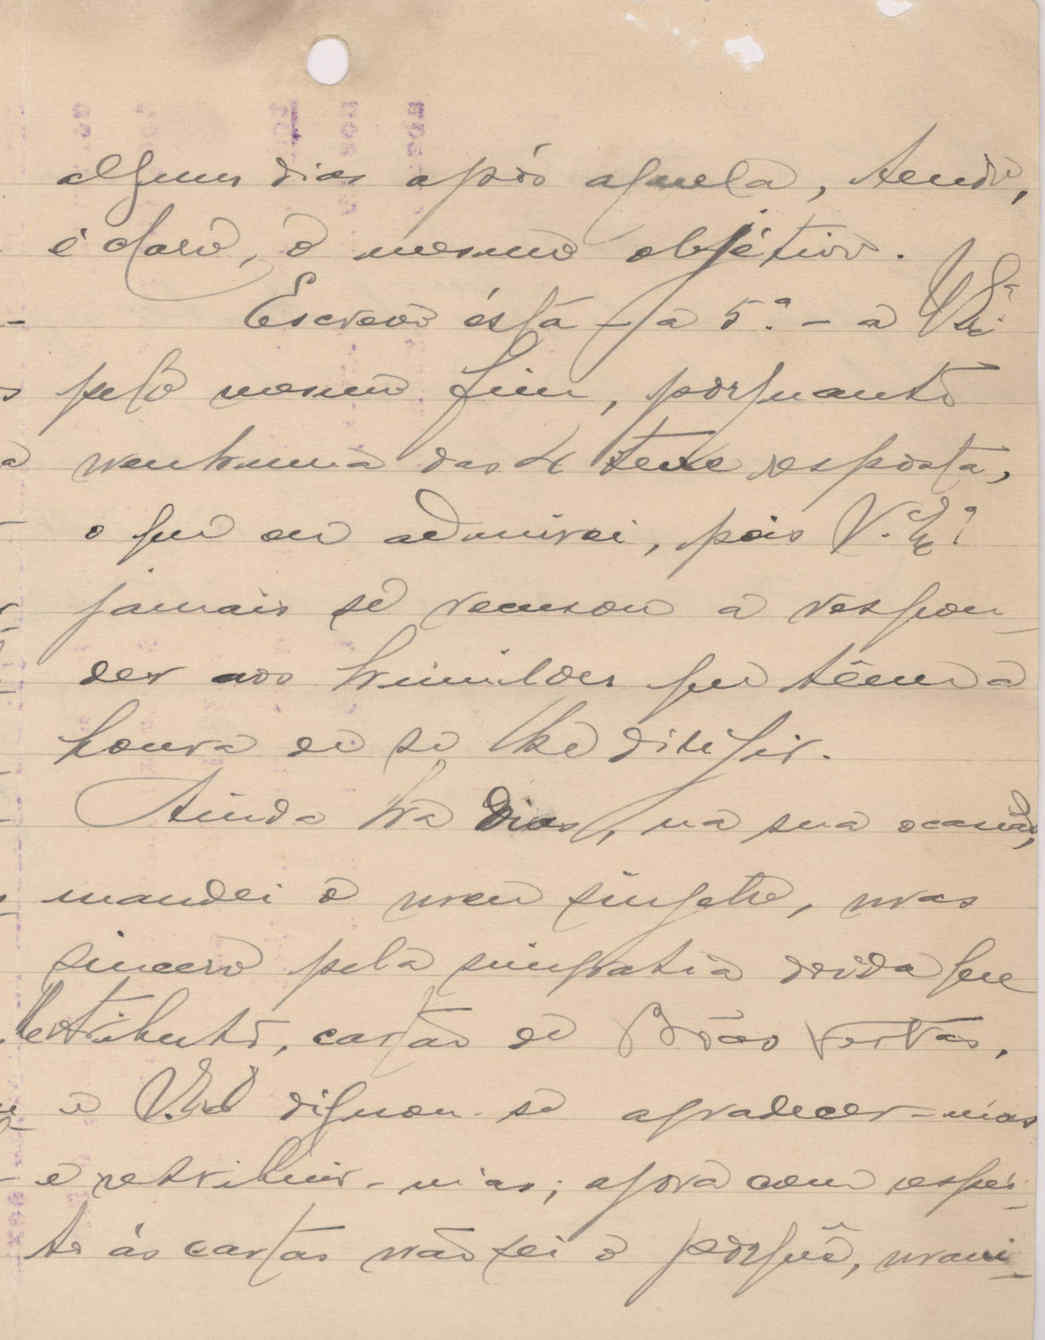 alguns dias após aquela, tendo,
é claro, o mesmo objétivo.
Escrevo ésta - a 5.ª - a V. Ex.ª
pelo mesmo fim, porquanto
nenhuma das 4 teve resposta,
o que eu admirei, pois V. Ex.ª
jamais se recusou a respon-
der aos humildes que têem a
honra de se lhe dirigir.
Ainda ha dias, na sua ocasião,
mandei o meu singelo, mas
sincero pela simpatia devida que
tributo, cartão de Bôas Festas,
e V. Ex.ª dignou-se agradecer-mas
e retribuir-mas; agora com respei-
to ás cartas não sei o porquê,